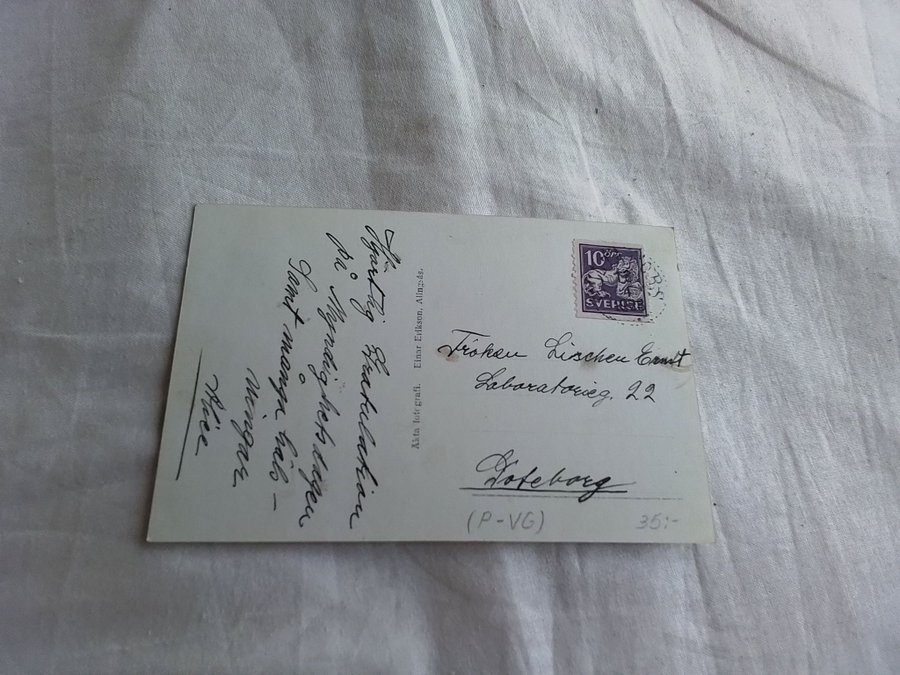 Hjärtlig Gratulation
på Myndighetsdagen
Samt många häls-
ningar
Alice
Äkta fotografi. Einar Erikson, Alingsås.
10 ÖRE
SVERIGE
BS
Fröken Lischen Ernst
Laboratorieg. 22
Göteborg
(P-VG)
35:-